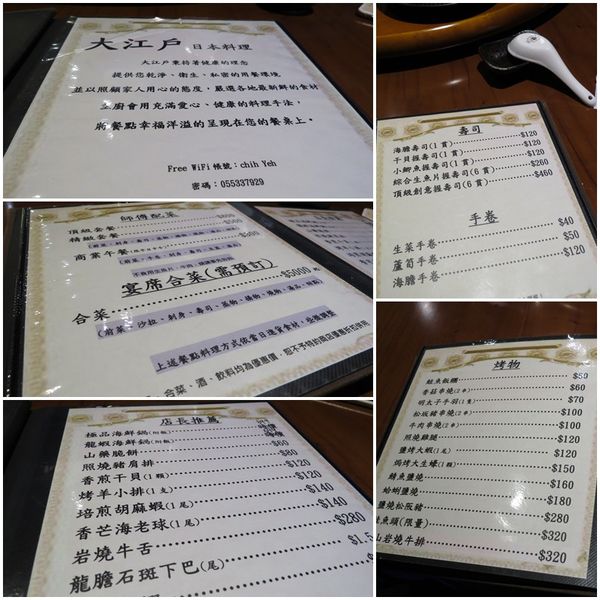 大江戶 日本料理
大江戶秉持著健康的理念
提供您乾淨、衛生、私密的用餐環境
並以照顧家人用心的態度，嚴選各地最新鮮的食材
主廚會用充滿愛心、健康的料理手法，
將餐點幸福洋溢的呈現在您的餐桌上。
Free WiFi 帳號：chih Yeh
密碼：055337929
壽司
海膽壽司(1貫) $120
干貝握壽司(1貫) $120
小鯽魚握壽司(1貫) $120
綜合生魚片握壽司(6貫) $260
頂級創意握壽司(6貫) $460
手卷
生菜手卷 $40
蘆筍手卷 $50
海膽手卷 $120
師傅配菜
頂級套餐
精緻套餐 $500
商業午餐
宴席合菜(需預訂)
合菜 $5000
上述餐點料理方式依當日進貨食材，些微調整
合菜、酒、飲料均為優惠價，恕不予特約商店優惠折扣併用
店長推薦
極品海鮮鍋
龍蝦海鮮鍋
山藥脆餅
照燒豬肩排 $80
香煎干貝(1顆) $120
烤羊小排(1支) $120
焙煎胡麻蝦(1尾) $140
香芒海老球(1尾) $140
岩燒牛舌 $280
龍膽石斑下巴(尾)
烤物
鮭魚飯糰 $50
香菇串燒(2串) $60
明太子手羽(1隻) $70
松坂豬串燒(2串) $100
牛肉串燒(2串) $100
照燒雞腿 $120
鹽烤大蝦(1尾) $120
焗烤大生蠔(1顆) $150
鯖魚鹽燒 $160
蛤蜊鹽燒 $180
鹽燒松阪豬 $280
魚頭(限量) $320
山岩燒牛排 $320